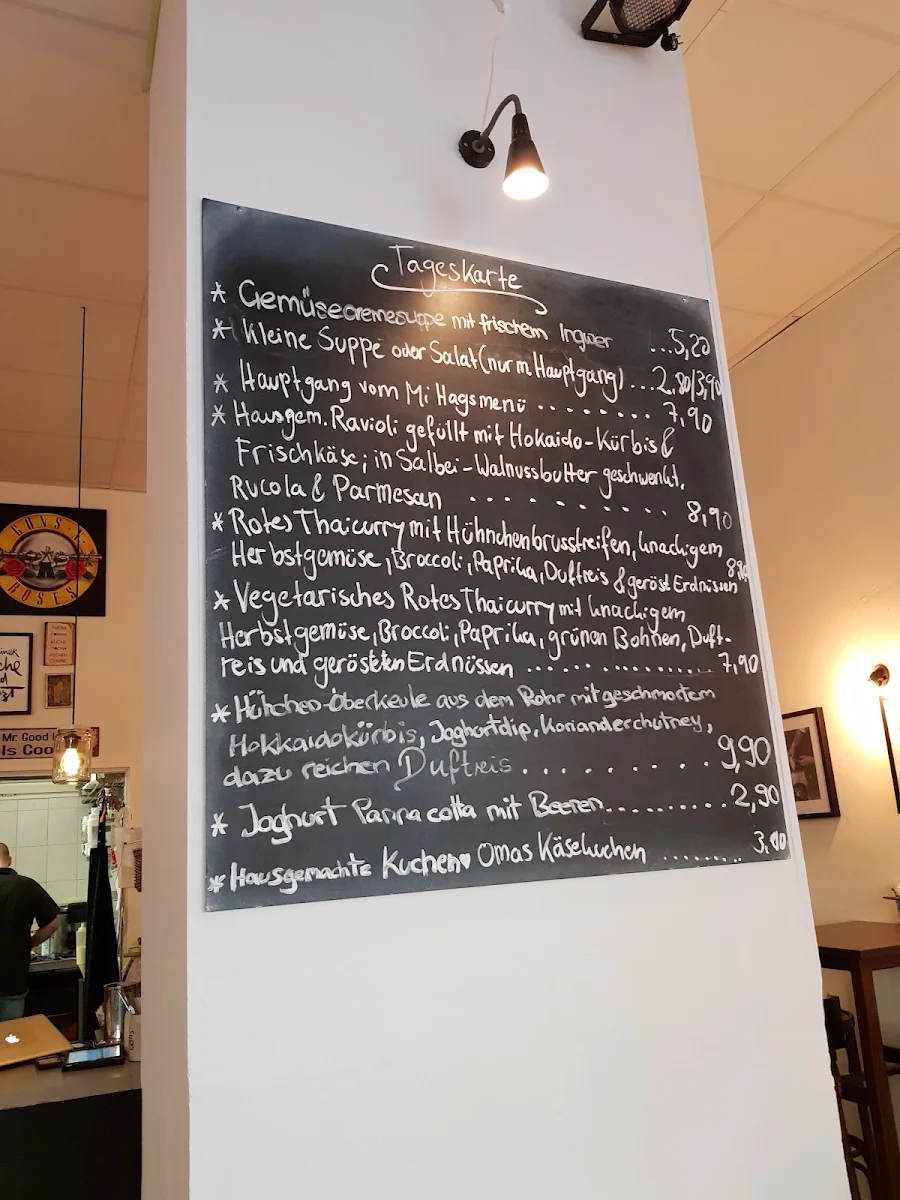 Tageskarte
* Gemüsecremesuppe mit frischem Ingwer ...5,20
* Kleine Suppe oder Salat (nur m. Hauptgang) ...2,80/3,90
* Hauptgang vom Mittagsmenü ........ 7,90
* Hausgem. Ravioli gefüllt mit Hokaido-Kürbis &
Frischkäse; in Salbei-Walnussbutter geschwenkt,
Rucola & Parmesan ....... 8,90
* Rotes Thaicurry mit Hühnchenbrusstreifen, knackigem
Herbstgemüse, Broccoli, Paprika, Duftreis & geröst Erdnüssen
* Vegetarisches Rotes Thaicurry mit knackigem
Herbstgemüse, Broccoli, Paprika, grünen Bohnen, Duft-
reis und gerösteten Erdnüssen .................. 7,90
* Hühchen-Oberkeule aus dem Rohr mit geschmortem
Hokkaidokürbis, Joghurtdip, Korianderchutney,
dazu reichen Duftreis .......... 9,90
* Joghurt Panna cotta mit Beeren.......... 2,90
* Hausgemachte Kuchen♥ Omas Käsekuchen ........
GUNS N'
ROSES
Mr. Good